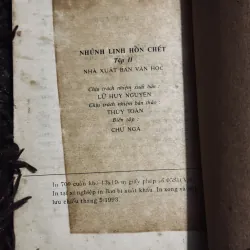 NHỮNG LINH HỒN CHẾT
Tập II
NHÀ XUẤT BẢN VĂN HỌC
Chịu trách nhiệm xuất bản
LỮ HUY NGUYÊN
Chịu trách nhiệm bản thảo
THÚY TOÀN
Biên tập
CHU NGA
In 700 cuốn khổ 13x19 giấy phép số
In tại xí nghiệp in Bao bì xuất khẩu. In xong và
lưu chiểu tháng 5/1993.